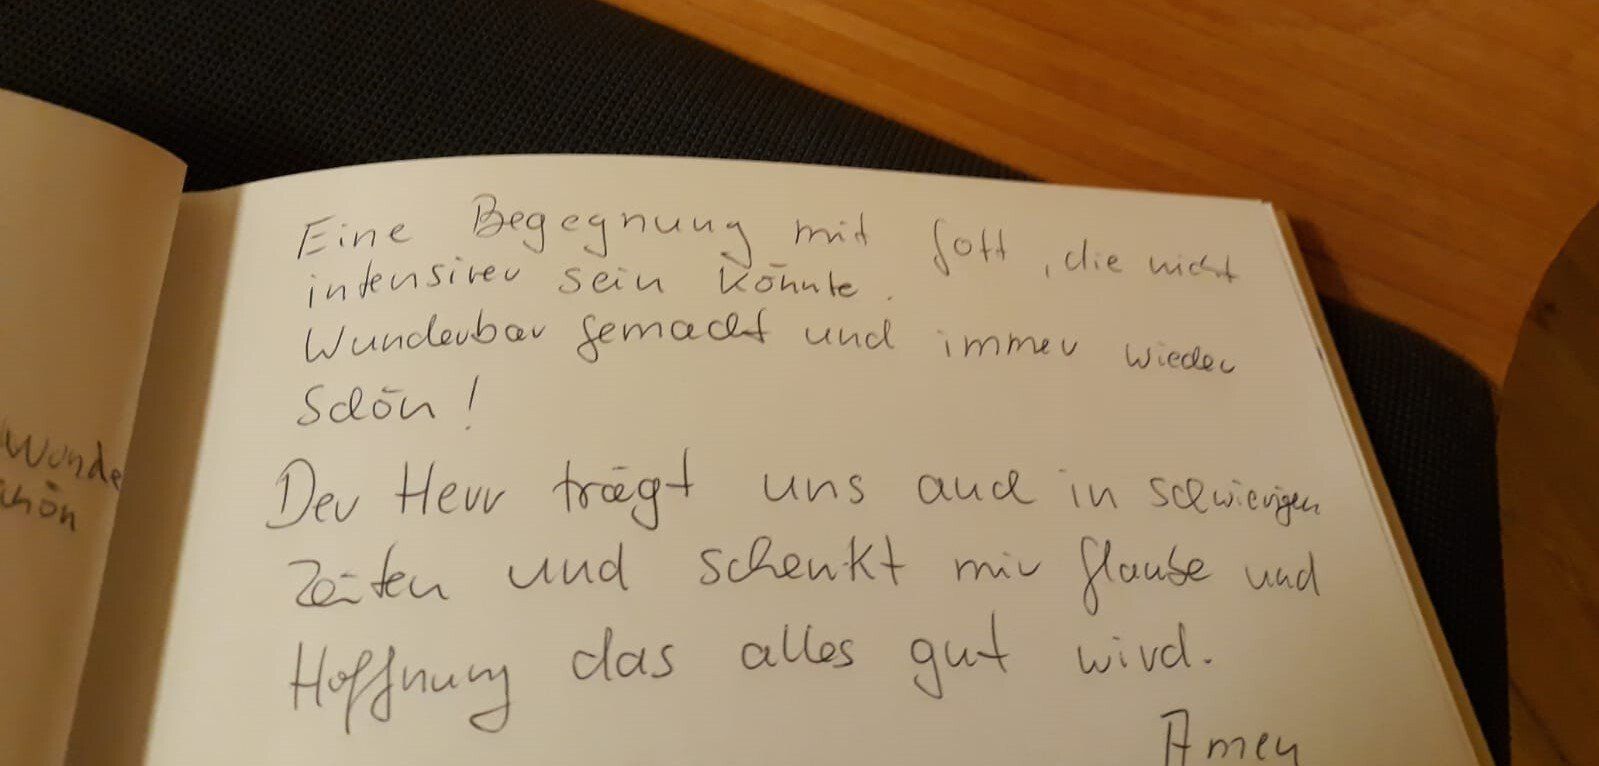 Eine Begegnung mit Gott, die nicht
intensiver sein könnte.
Wunderbar gemacht und immer wieder
schön!
Der Herr trägt uns auch in schwierigen
Zeiten und schenkt mir Glaube und
Hoffnung das alles gut wird.
Amen
Wunde
chön